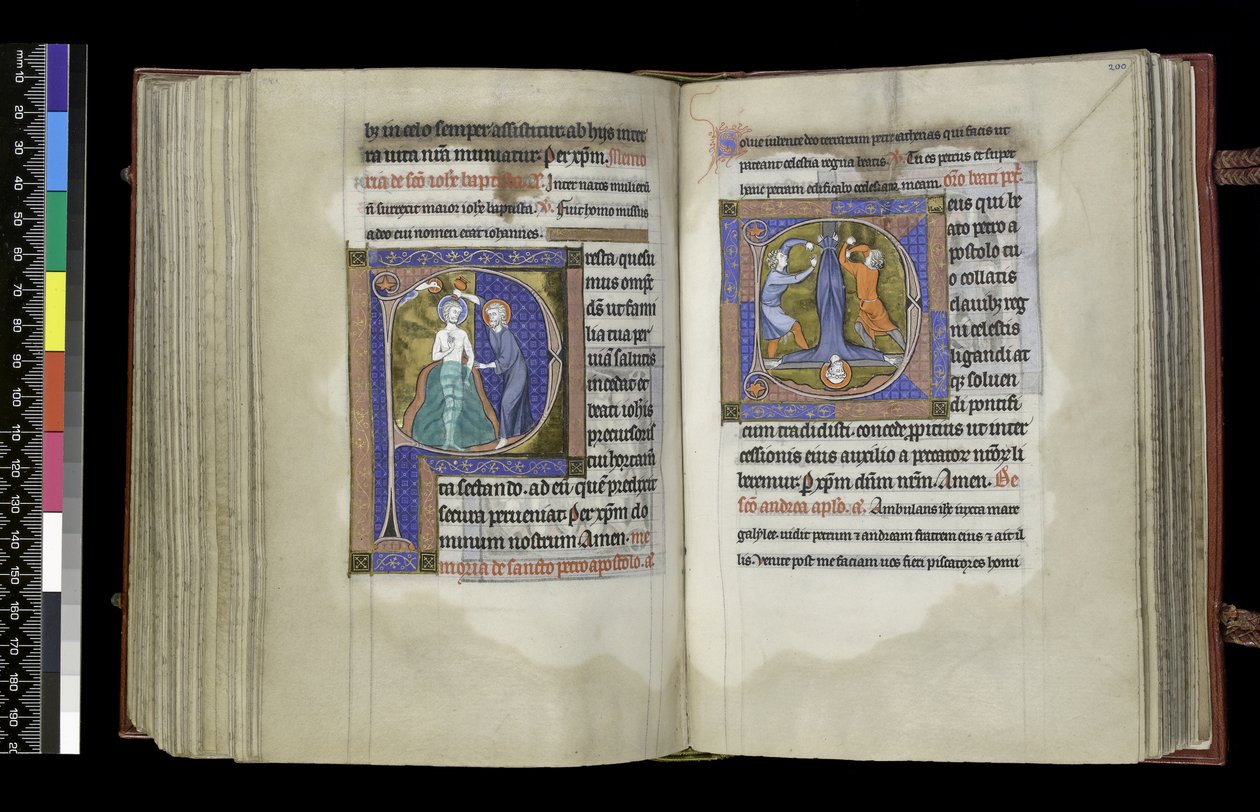 bꝫ in celo semper assistitur. ab hijs inter
ra uita nr̄a muniatur. Per xp̄m. Memo
ria de sc̄o ioħe baptista. a͞. Inter natos mulierū
n̄ surrexit maior ioħe baptista. V̄. Fuit homo missus
a deo cui nomen erat iohannes.
Presta quesu
mus omp̄s
ds̄ ut fami
lia tua per
uiā salutis
incedat et
beati ioħis
precursoris
tui hortam̄
ta sectando. ad eū quē predixit
secura perueniat. Per xp̄m do
minum nostrum Amen. me
moria de sancto petro apostolo. a͞.
200
Solue iubente deo terrarum petre cathenas qui facis ut
pateant celestia regna beatis. V̄. Tu es petrus et super
hanc petram edificabo ecclesiam meam. or̄o beati pet̄.
Deus qui be
ato petro a
postolo tu
o collatis
clauibꝫ reg
ni celestis
ligandi at
qꝫ soluen
di pontifi
cium tradidisti. concede ꝓpitius ut inter
cessionis eius auxilio a peccator̄ nr̄or̄ li
beremur. ꝑ xp̄m dn̄m nr̄m. Amen. De
sc̄o andrea apl̄o. a͞. Ambulans iħc iuxta mare
galylee. uidit petrum ⁊ andream fratrem eius ⁊ ait il
lis. Venite post me faciam uos fieri piscatores homi
mm 10 20 30 40 50 60 70 80 90 100 110 120 130 140 150 160 170 180 190